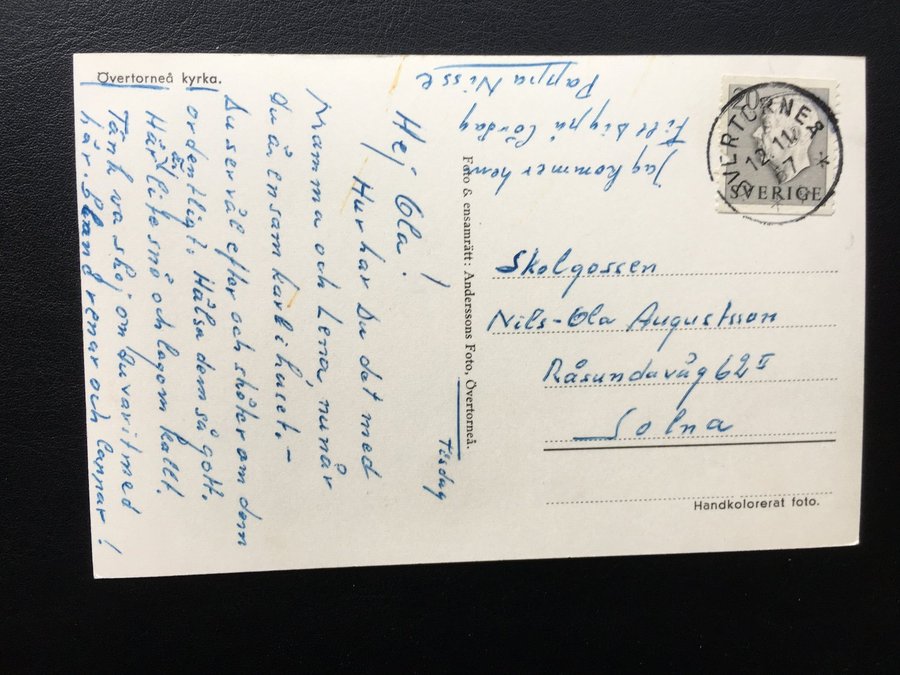 Övertorneå kyrka.
Tisdag
Hej Ola!
Hur har Du det med
Mamma och Lena, nu när
Du är ensam karl i huset. –
Du ser väl efter och sköter om dem
ordentligt. Hälsa dem så gott.
Här är lite snö och lagom kallt.
Tänk va skoj om Du varit med
här. Bland renar och lappar!
Jag kommer hem
till Dig på lördag
Pappa Nisse
Foto & ensamrätt: Anderssons Foto, Övertorneå.
ÖVERTORNEÅ
12.11.
57
SVERIGE
Skolgossen
Nils-Ola Augustsson
Råsundaväg 62 II
Solna
Handkolorerat foto.